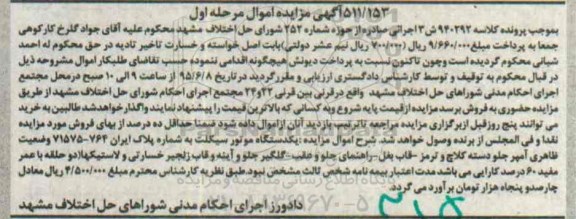 ۵۱۱/۱۵۳ آگهی مزایده اموال مرحله اول
بموجب پرونده کلاسه ۹۴۰۲۹۲ ش ۳ اجرائی صادره از حوزه شماره ۲۵۲ شورای حل اختلاف مشهد محکوم علیه آقای جواد گلرخ کارکوهی
جمعا به پرداخت مبلغ ۹/۶۶۰/۰۰۰ ریال (۷۰۰/۰۰۰ ریال نیم عشر دولتی) بابت اصل خواسته و خسارت تاخیر تادیه در حق محکوم له احمد
شبانی محکوم گردیده است و چون تاکنون نسبت به پرداخت دیونش هیچگونه اقدامی ننموده حسب تقاضای طلبکار اموال مشروحه ذیل
در قبال محکوم به توقیف و توسط کارشناس دادگستری ارزیابی و مقرر گردید در تاریخ ۹۵/۶/۸ از ساعت ۹ الی ۱۰ صبح در محل مجتمع
اجرای احکام مدنی شوراهای حل اختلاف مشهد واقع در قرنی بین قرنی ۲۲ و ۲۴ مجتمع اجرای احکام شورای حل اختلاف مشهد از طریق
مزایده حضوری به فروش برسد مزایده از قیمت پایه شروع و به کسانی که بالاترین قیمت را پیشنهاد نمایند واگذار خواهد شد. طالبین به خرید
می توانند پنج روز قبل از برگزاری مزایده به این اجرا مراجعه تا ترتیب بازدید آنان از اموال داده شود ضمنا حداقل ده درصد از بهای فروش مورد مزایده
نقدا و فی المجلس از برنده وصول خواهد شد. شرح اموال مزایده: یکدستگاه موتور سیکلت به شماره پلاک ایران ۷۶۴-۷۱۵۷۵ وضعیت
ظاهری آمپر جلو دسته کلاچ و ترمز -قاب بغل -راهنمای جلو و عقب -گلگیر جلو و آینه و قاب زنجیر خسارتی و لاستیکها (دو حلقه با عمر
مفید ۶۰ درصد کارایی می باشد مدت اعتبار بیمه نامه شخص ثالث مشخص نبود. طبق نظریه کارشناس محترم مبلغ ۴/۵۰۰/۰۰۰ ریال معادل
چهارصد و پنجاه هزار تومان برآورد می گردد.
دادورز اجرای احکام مدنی شوراهای حل اختلاف مشهد